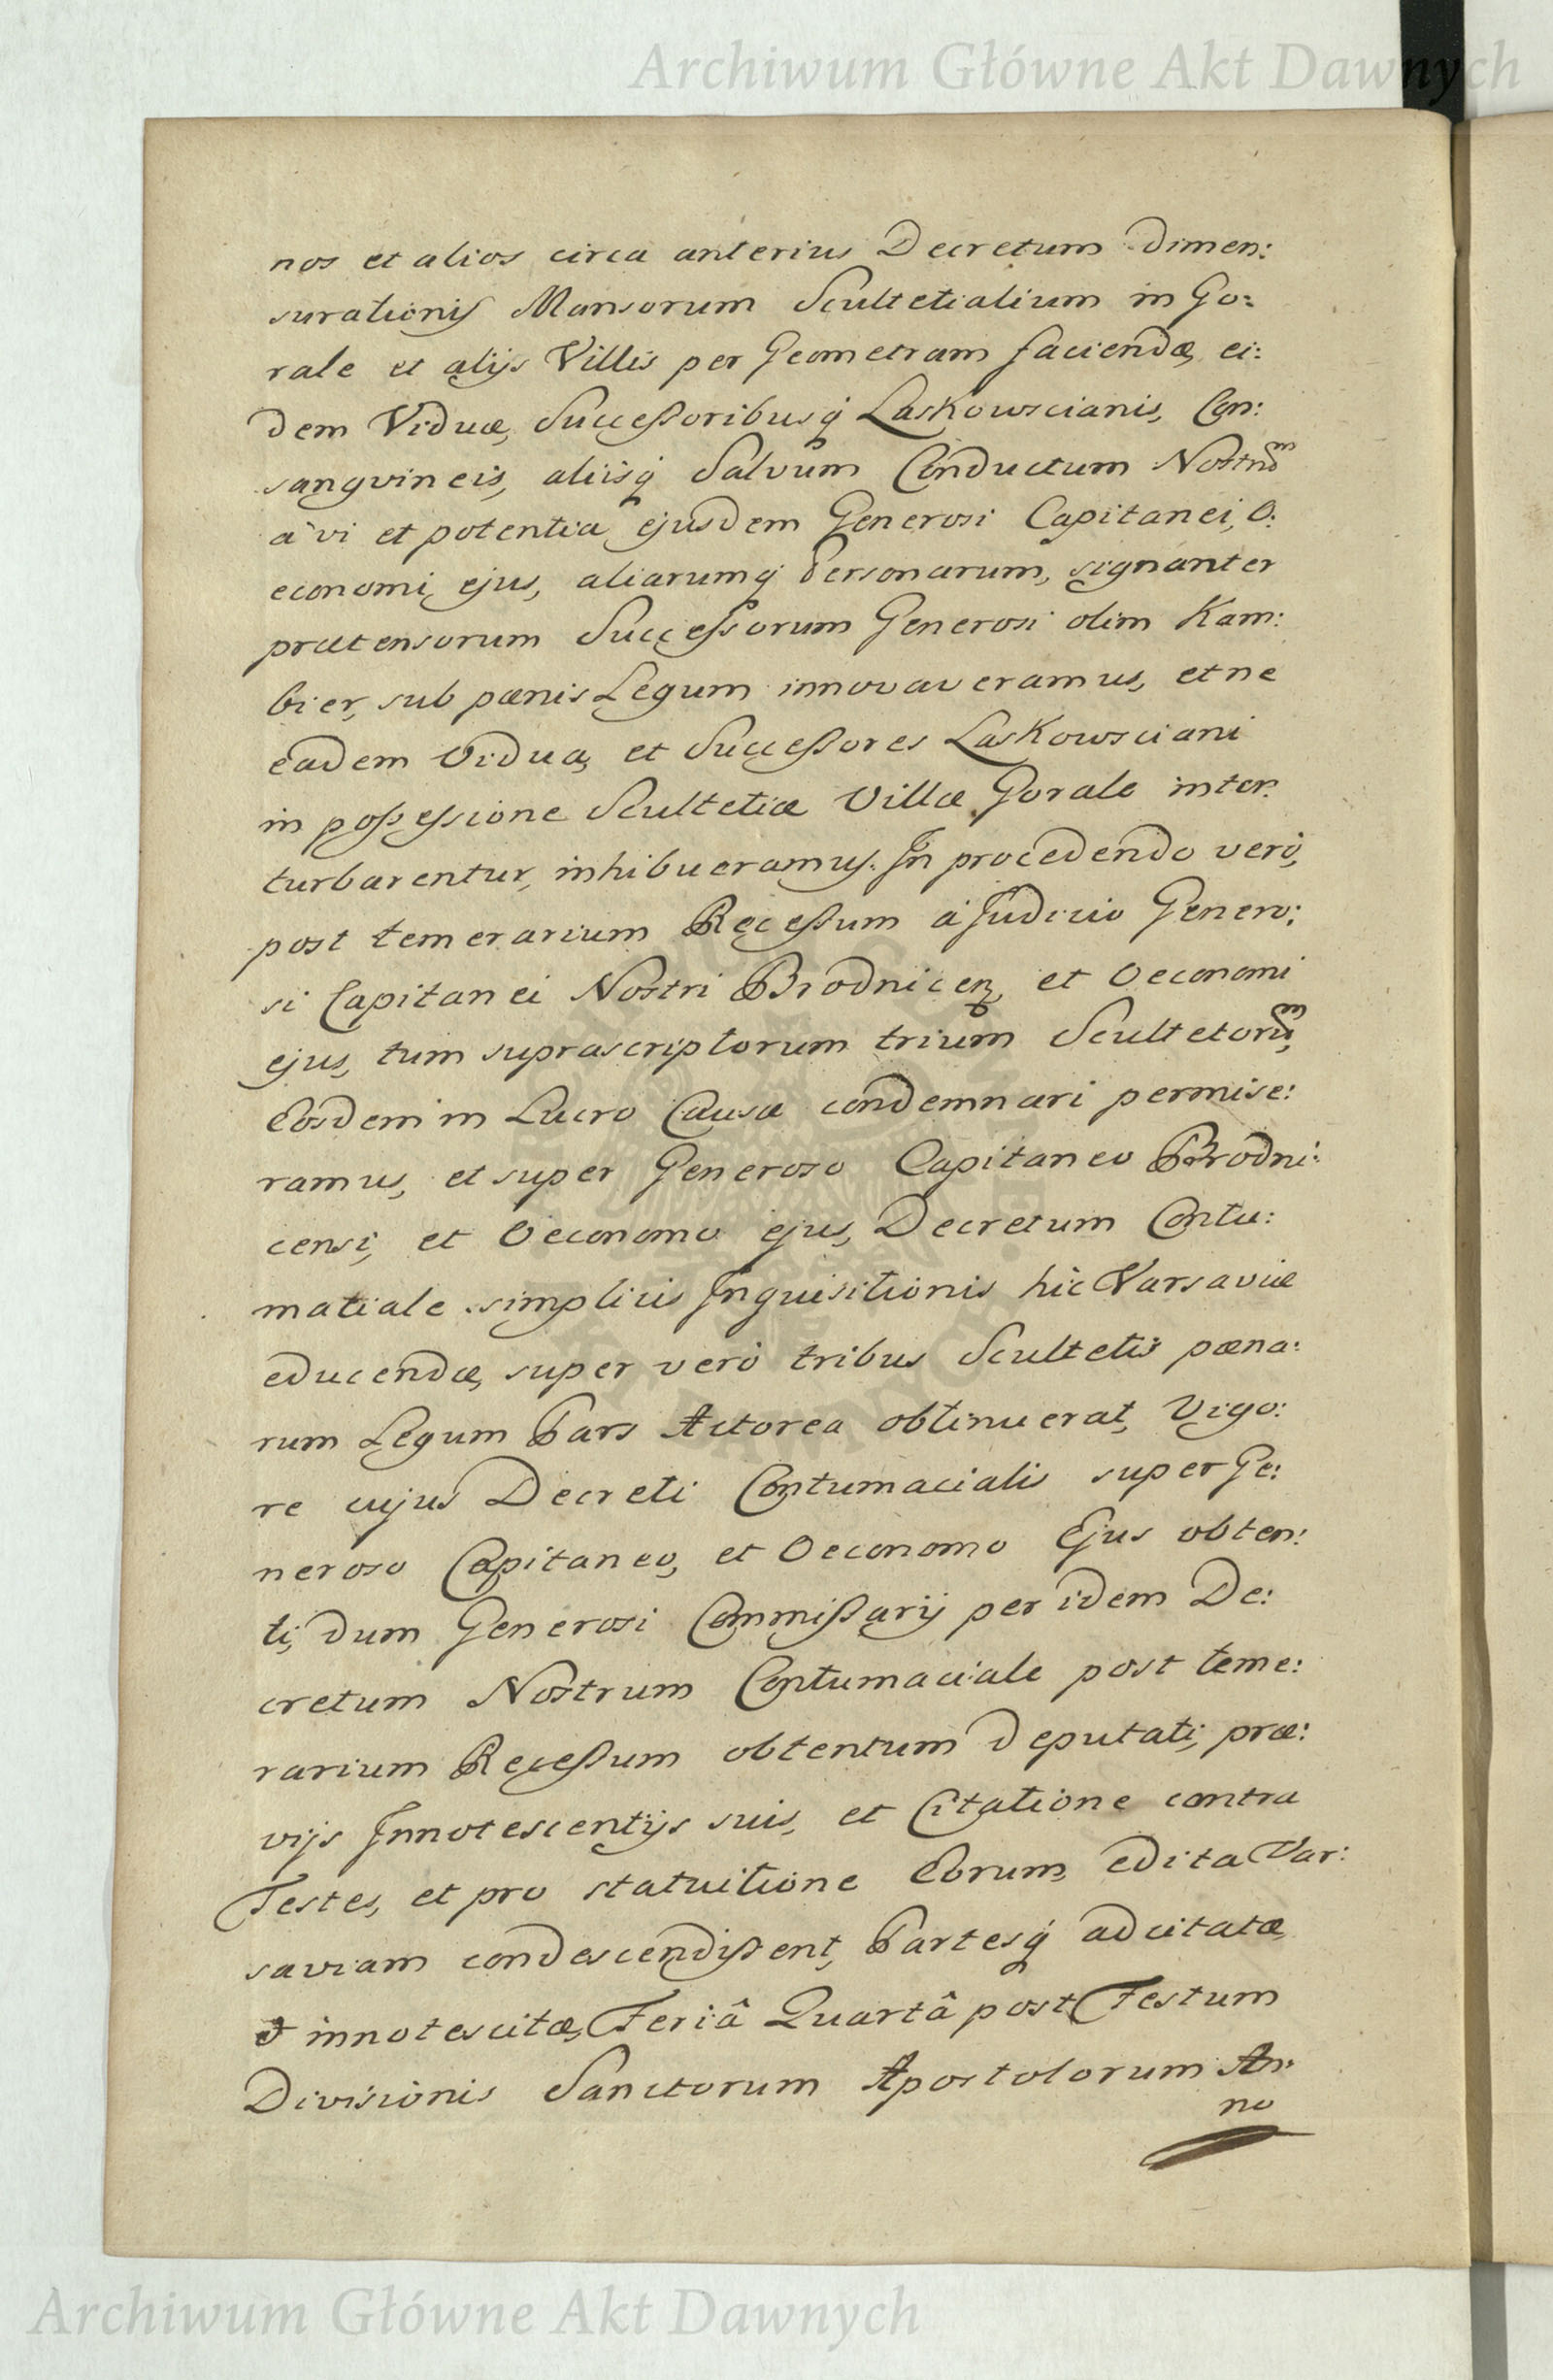 Archiwum Główne Akt Dawnych
nos et alios circa anterius Decretum dimen:
surationis Mansorum Scultetialium in Go:
rale et alijs Villis per Geometram faciendæ, ei:
dem Viduæ, Successoribusq́ Laskowscianis, Con:
sangvineis, aliisq́ Salvum Conductum Nostrūm
à vi et potentia ejusdem Generosi Capitanei, O:
economi ejus, aliarumq́ Personarum, signanter
prætensorum Successorum Generosi olim Kam:
bier, sub pænis Legum innovaveramus, et ne
eadem Vidua, et Successores Laskowsciani
in possessione Scultetiæ Villæ Gorale inter:
turbarentur, inhibueramus. In procedendo verò,
post temerarium Recessum à Judicio Genero:
si Capitanei Nostri Brodnicen, et Oeconomi
ejus, tum suprascriptorum trium Scultetorūm,
Eosdem in Lucro Causæ condemnari permise:
ramus, et super Generoso Capitaneo Brodni:
censi, et Oeconomo ejus, Decretum Contu:
matiale simplicis Inquisitionis hic Varsaviæ
educendæ, super verò tribus Scultetis pæna:
rum Legum Pars Actorea obtinuerat, Vigo:
re cujus Decreti Contumacialis super Ge:
neroso Capitaneo, et Oeconomo Ejus obten:
ti, dum Generosi Commissarij per idem De:
cretum Nostrum Contumaciale post teme:
rarium Recessum obtentum deputati, præ:
vijs Innotescentijs suis, et Citatione contra
Testes, et pro statuitione Eorum, edita Var:
saviam condescendissent, Partesq́ adcitatæ
et innotescitæ, Feriâ Quartâ post Festum
Divisionis Sanctorum Apostolorum An:
no
Archiwum Główne Akt Dawnych